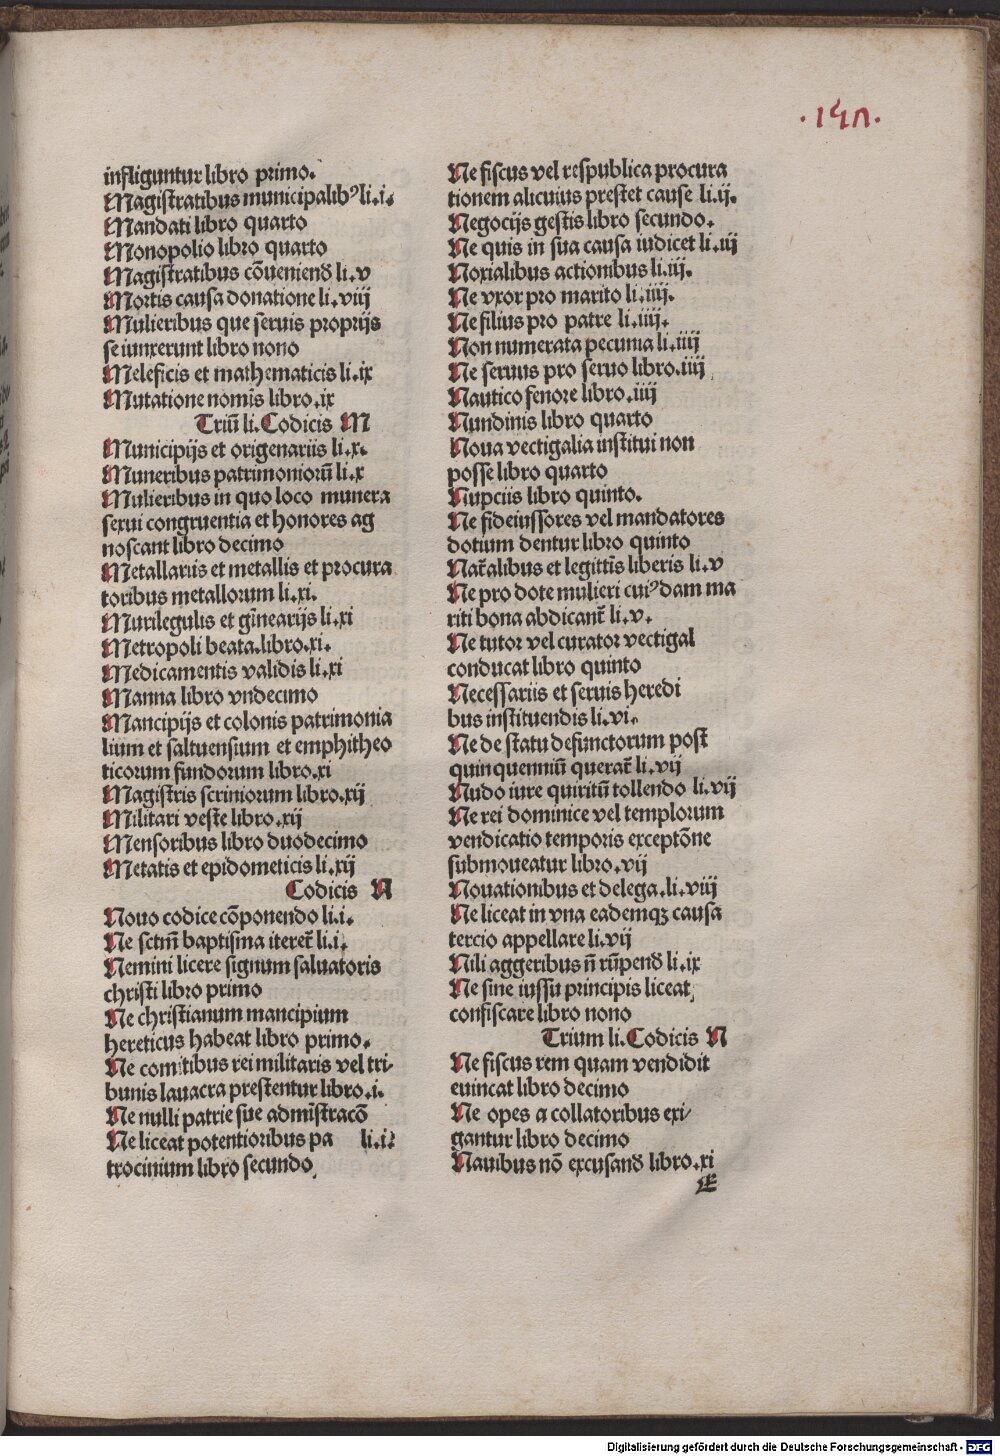 infliguntur libro primo.
Magistratibus municipalibꝰ li.i.
Mandati libro quarto
Monopolio libro quarto
Magistratibus cõueniend li.v
Mortis causa donatione li.viij
Mulieribus que seruis proprijs
se iunxerunt libro nono
Meleficis et mathematicis li.ix
Mutatione nomĩs libro.ix
Triũ li.Codicis M
Municipijs et origenariis li.x.
Muneribus patrimoniorũ li.x
Mulieribus in quo loco munera
sexui congruentia et honores ag
noscant libro decimo
Metallariis et metallis et procura
toribus metallorum li.xi.
Murilegulis et gĩnearijs li.xi
Metropoli beata.libro.xi.
Medicamentis validis li.xi
Manna libro vndecimo
Mancipijs et colonis patrimonia
lium et saltuensium et emphitheo
ticorum fundorum libro.xi
Magistris scriniorum libro.xij
Militari veste libro.xij
Mensoribus libro duodecimo
Metatis et epidometicis li.xij
Codicis N
Nouo codice cõponendo li.i.
Ne sctm̃ baptisma iteret᷑ li.i.
Nemini licere signum saluatoris
christi libro primo
Ne christianum mancipium
hereticus habeat libro primo.
Ne comitibus rei militaris vel tri-
bunis lauacra prestentur libro.i.
Ne nulli patrie sue admĩstracõ
Ne liceat potentioribus pa li.i.
trocinium libro secundo
.147.
Ne fiscus vel respublica procura
tionem alicuius prestet cause li.ij.
Negocijs gestis libro secundo.
Ne quis in sua causa iudicet li.iij
Noxialibus actionibus li.iij.
Ne vxor pro marito li.iiij.
Ne filius pro patre li.iiij.
Non numerata pecunia li.iiij
Ne seruus pro seruo libro.iiij
Nautico fenore libro.iiij
Nundinis libro quarto
Noua vectigalia institui non
posse libro quarto
Nupciis libro quinto.
Ne fideiussores vel mandatores
dotium dentur libro quinto
Nat᷑alibus et legittĩs liberis li.v
Ne pro dote mulieri cuiꝰdam ma
riti bona abdicant᷑ li.v.
Ne tutor vel curator vectigal
conducat libro quinto
Necessariis et seruis heredi
bus instituendis li.vi.
Ne de statu defunctorum post
quinquenniũ querat᷑ li.vij
Nudo iure quiritũ tollendo li.vij
Ne rei dominice vel templorum
vendicatio temporis exceptõne
submoueatur libro.vij
Nouationibus et delega.li.viij
Ne liceat in vna eademqꝫ causa
tercio appellare li.vij
Nili aggeribus ñ rũpend li.ix
Ne sine iussu principis liceat
confiscare libro nono
Trium li.Codicis N
Ne fiscus rem quam vendidit
euincat libro decimo
Ne opes a collatoribus exi-
gantur libro decimo
Nauibus nõ excusand libro.xi
E
Digitalisierung gefördert durch die Deutsche Forschungsgemeinschaft - DFG